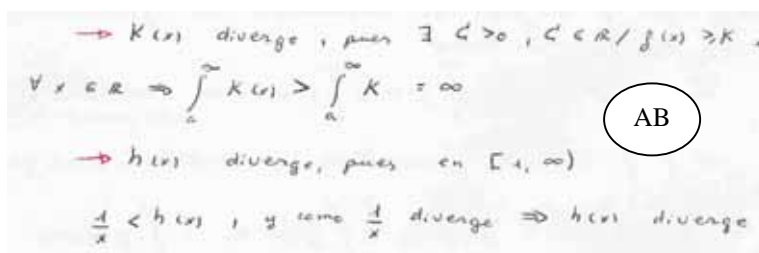 → K(x) diverge, pues ∃ C > 0, C ∈ R / f(x) ≥ K,
∀ x ∈ R ⇒ ∫ₐ^∞ K(x) > ∫ₐ^∞ K = ∞
AB
→ h(x) diverge, pues en [1, ∞)
1/x < h(x), y como 1/x diverge ⇒ h(x) diverge